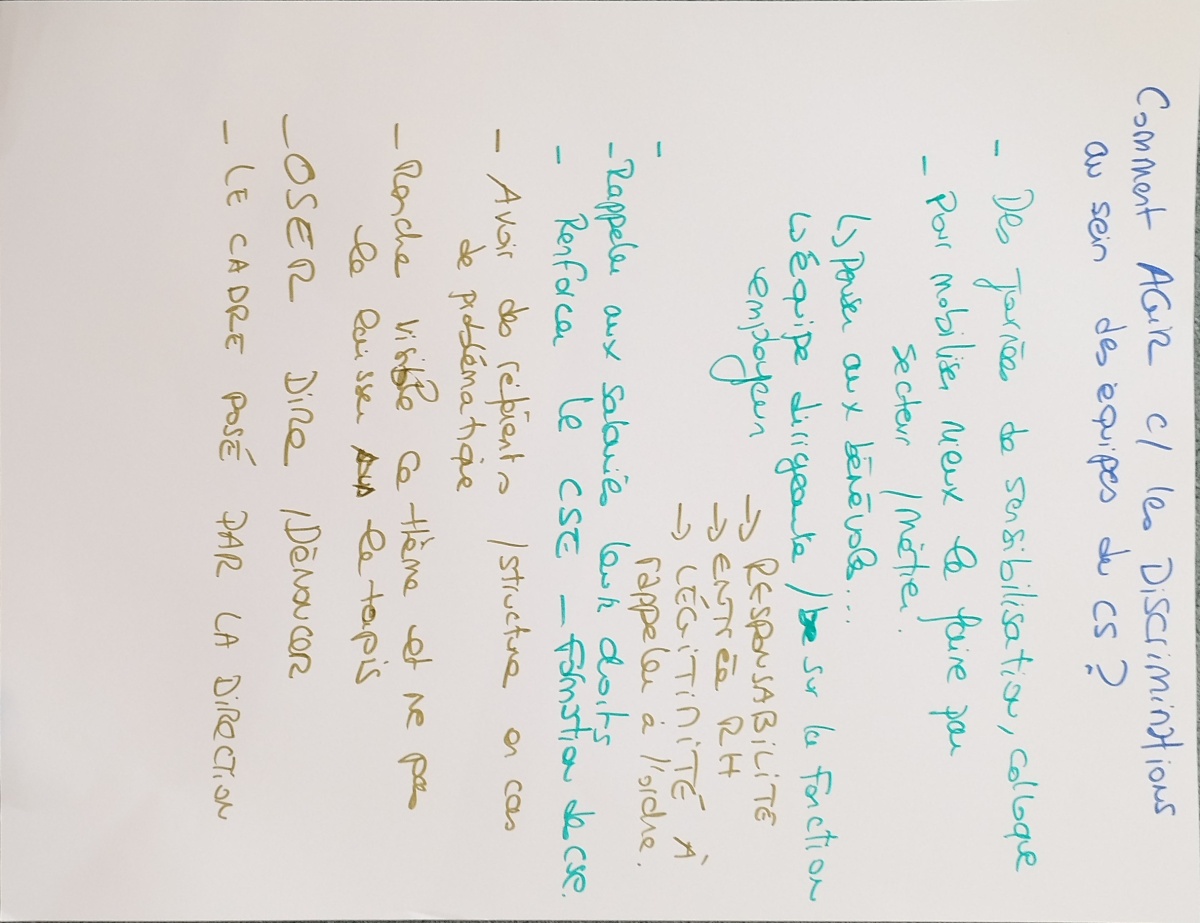 Comment AGIR c/ les DiscriminAtions
au sein des équipes du CS ?
- Des Journées de sensibilisation, colloque
- Pour mobiliser mieux le faire par
secteur / métier.
↳ penser aux bénévoles...
↳ Équipe dirigeante / sur la fonction
employeur
→ RESPONSABILITÉ
→ ENTRÉE RH
→ LÉGITIMITÉ À
rappeler à l'ordre.
-
- Rappeler aux salariés leurs droits
- Renforcer le CSE - formation de CSE.
- Avoir des référents / structure en cas
de problématique
- Rendre visible ce thème et ne pas
le laisser le tapis
- OSER DIRE / DÉNONCER
- LE CADRE POSÉ PAR LA DIRECTION